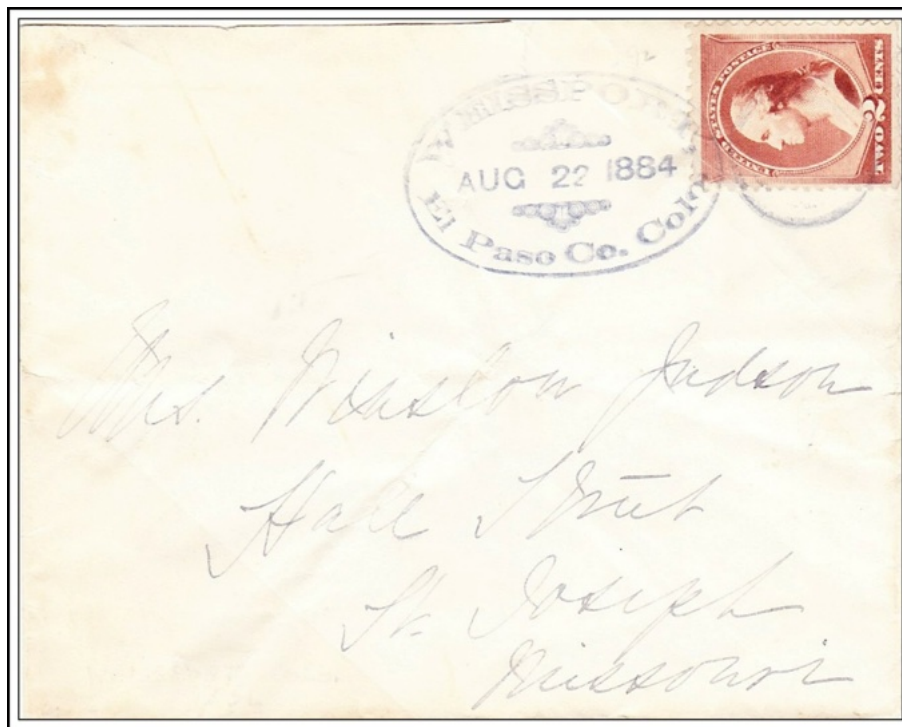 WEISSPORT,
AUG 22 1884
El Paso Co. Colo.
UNITED STATES POSTAGE
TWO 2 CENTS
Mrs. Winslow Judson
Hall Street
St. Joseph
Missouri